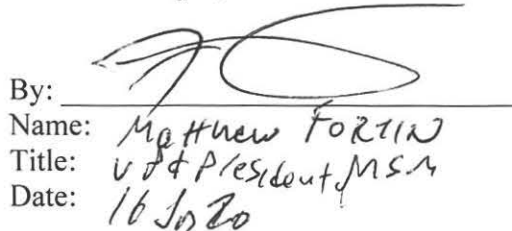 By:
Name: Matthew FORTIN
Title: VP & President, MSM
Date: 16 Jn 20